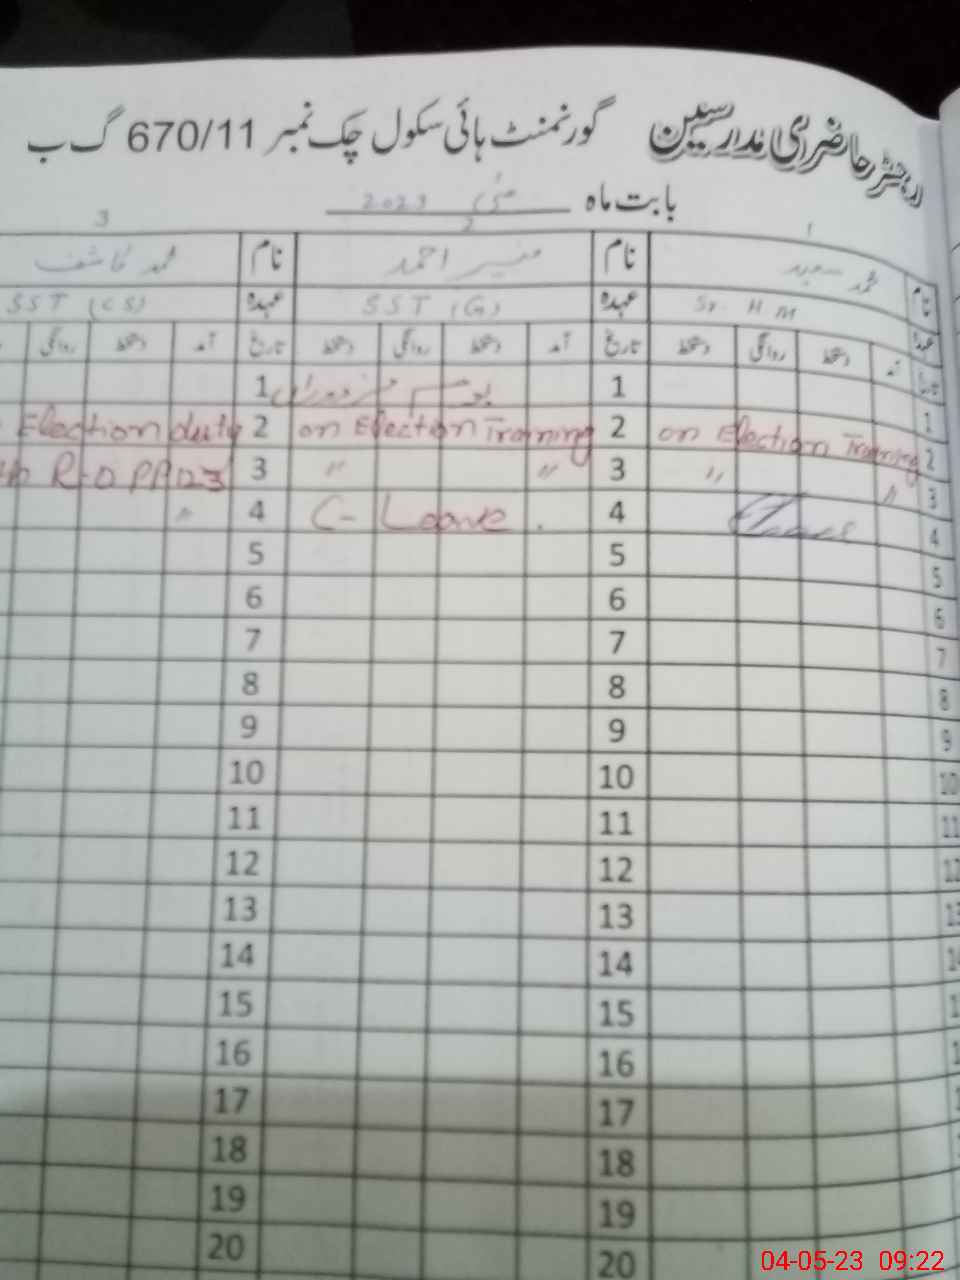 رجسٹر حاضری مدرسین گورنمنٹ ہائی سکول چک نمبر 670/11 گ ب
بابت ماہ مئی 2023
1 2 3
نام محمد سعید نام منیر احمد نام محمد کاشف
عہدہ Sr. H M عہدہ SST (G) عہدہ SST (CS)
تاریخ آمد دستخط روانگی دستخط تاریخ آمد دستخط روانگی دستخط تاریخ آمد دستخط روانگی
1 1 یوم مزدوراں 1
2 on Election Training 2 on Election Training 2 Election duty
3 " " 3 " " 3
4 4 C- Leave . 4 "
5 5 5
6 6 6
7 7 7
8 8 8
9 9 9
10 10 10
11 11 11
12 12 12
13 13 13
14 14 14
15 15
16 16
17 17
18 18
19 19
20 20
04-05-23 09:22